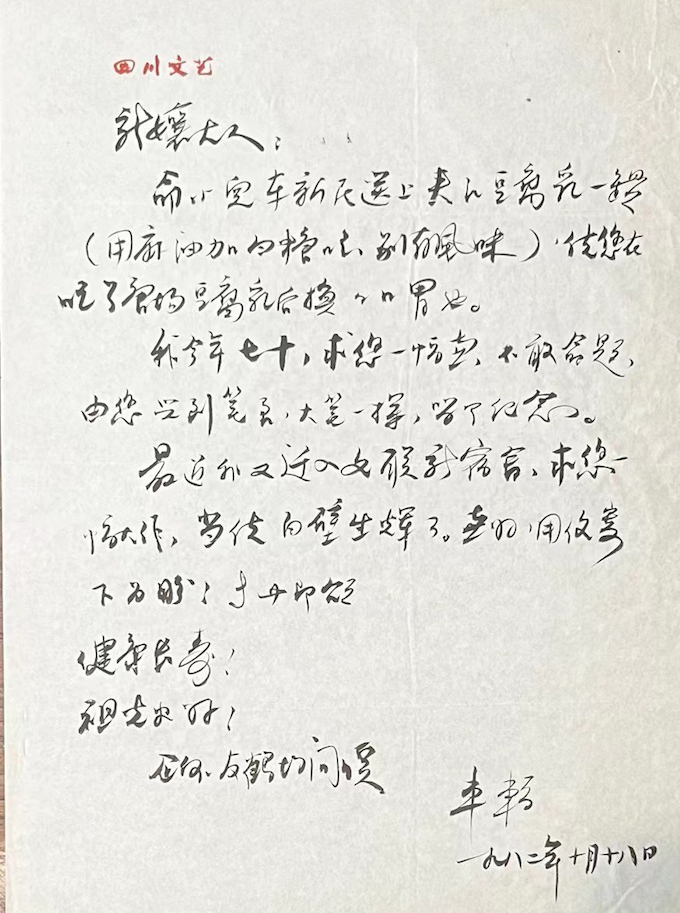 四川文艺
新孃大人：
命小儿车新民送上夹江豆腐乳一罐
（用麻油加白糖吃，别有风味），使您在
吃了唐场豆腐乳后换个口胃也。
我今年七十，求您一幅画，不敢命题，
由您兴到笔来，大笔一挥，留个纪念。
最近我又迁入文联新宿舍，求您一
幅大作，当使白壁生辉了。画好用仅寄
下为盼！专此即颂
健康长寿！
祖光兄好！
问候
车辐
一九八二年十月十八日